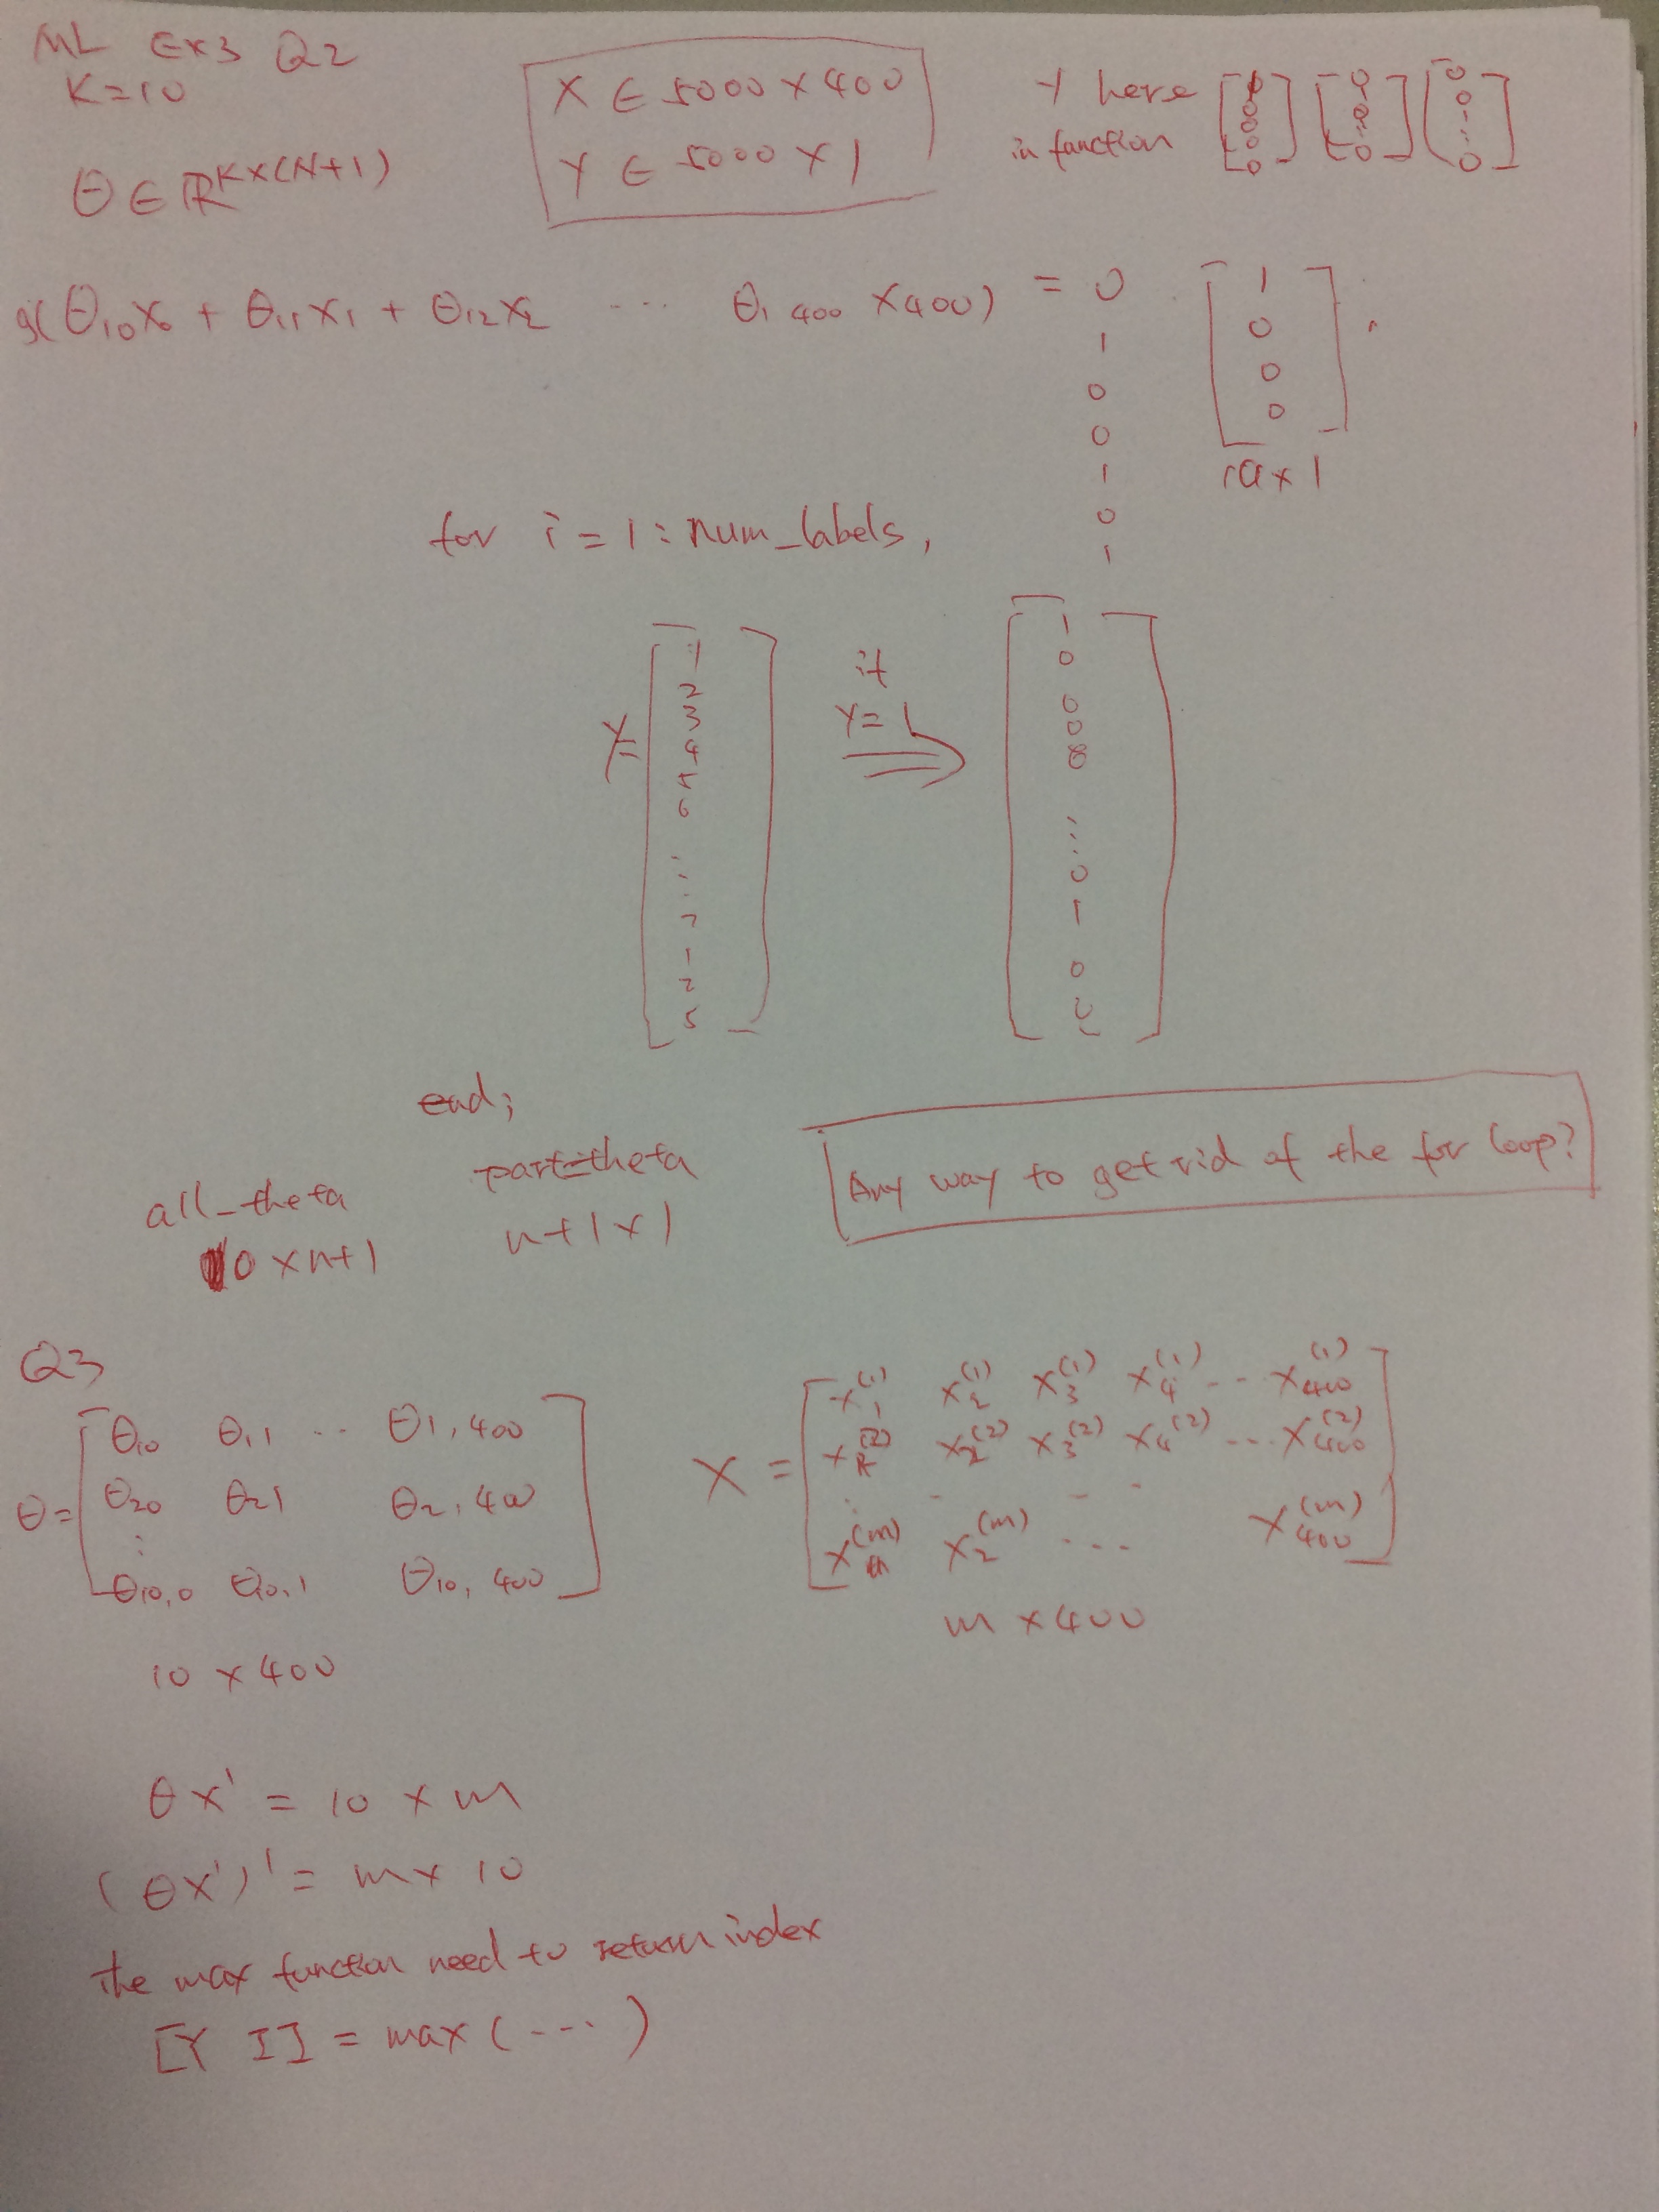 ML Ex3 Q2
K=10
θ ∈ ℝ^K×(N+1)
X ∈ 5000 × 400
Y ∈ 5000 × 1
Y here
in function
[1 0 0 0 0] [0 1 0 ⋮ 0] [0 0 1 ⋮ 0]
g(θ₁₀x₀ + θ₁₁x₁ + θ₁₂x₂ ... θ₁ ₄₀₀ x₄₀₀) = 0
1
0
0
1
0
1
[1 0 0 0]
10x1
for i = 1 : num_labels,
Y = [1 2 3 4 5 6 ⋮ 7 1 2 5]
if
Y = 1
⇒
[1 0 0 0 0 ⋮ 0 1 0 0]
end;
all_theta
10 x n+1
part=theta
n+1 x 1
Any way to get rid of the for loop?
Q3
θ = [θ₁₀ θ₁₁ .. θ1,400
θ₂₀ θ₂₁ θ₂,400
⋮
θ₁₀,₀ θ₁₀,₁ θ₁₀,400]
10 x 400
X = [x₁⁽¹⁾ x₂⁽¹⁾ x₃⁽¹⁾ x₄⁽¹⁾ ... x₄₀₀⁽¹⁾
x₁⁽²⁾ x₂⁽²⁾ x₃⁽²⁾ x₄⁽²⁾ ... x₄₀₀⁽²⁾
⋮ - - -
x₁⁽ᵐ⁾ x₂⁽ᵐ⁾ ... x₄₀₀⁽ᵐ⁾]
m x 400
θX' = 10 x m
(θX')' = m x 10
The max function need to return index
[Y I] = max (...)